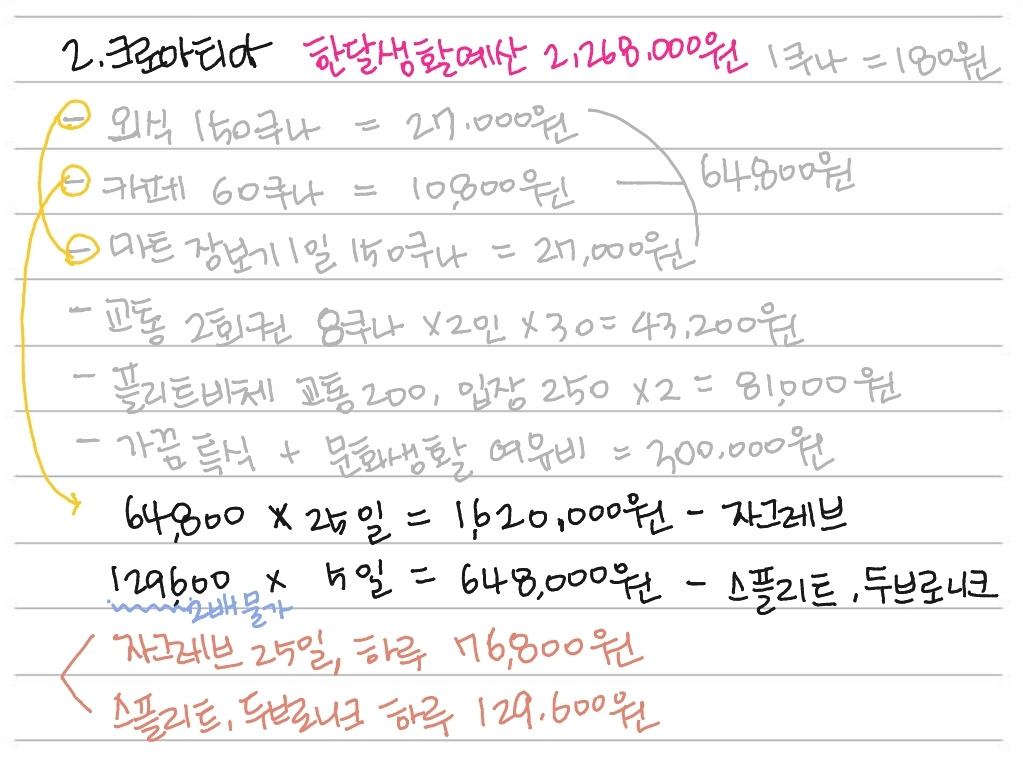 2.크로아티아 한달생활예산 2,268.000원 1쿠나 = 180원
- 외식 150쿠나 = 27.000원
- 카페 60쿠나 = 10,800원 64,800원
- 마트 장보기 1일 150쿠나 = 27,000원
- 교통 2회권 8쿠나 ×2인 ×30= 43,200원
- 플리트비체 교통200, 입장 250 ×2 = 81,000원
- 가끔 특식 + 문화생활 여유비 = 300.000원
64,800 × 25일 = 1,620,000원 - 자그레브
129,600 × 5일 = 648,000원 - 스플리트,두브로니크
2배 물가
자그레브 25일, 하루 76,800원
스플리트, 두브로니크 하루 129.600원